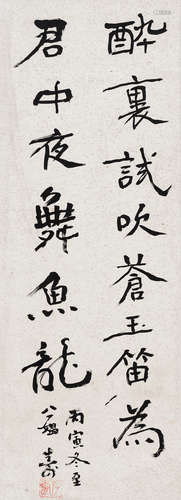 醉裏試吹蒼玉笛為
君中夜舞魚龍
丙寅冬至